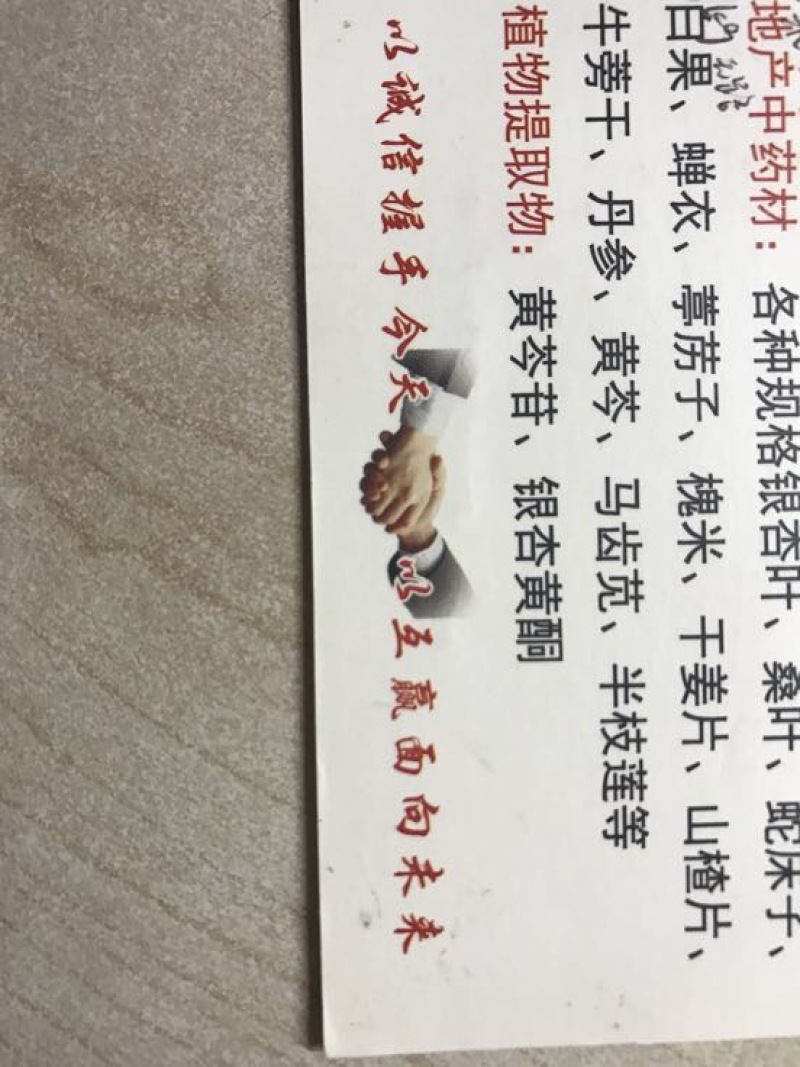 地产中药材：各种规格银杏叶、桑叶、蛇床子、
白果、蝉衣、葶苈子、槐米、干姜片、山楂片、
牛蒡干、丹参、黄芩、马齿苋、半枝莲等
植物提取物：黄芩苷、银杏黄酮
以诚信握手今天 以互赢面向未来